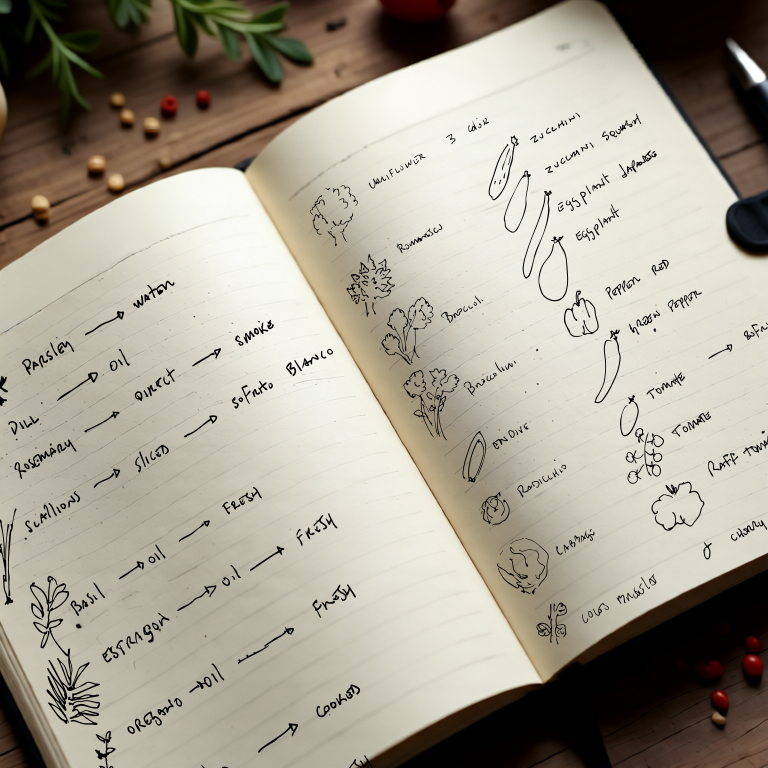 PARSLEY → WATER
DILL → OIL
ROSEMARY → DIRECT → SMOKE
SCALLIONS → SLICED → SOFRATO BLANCO
BASIL → OIL → FRESH
ESTRAGON → OIL → FRESH
OREGANO → OIL → FRESH
→ COOKED
CAULIFLOWER 3 COLOR
ROMANESCO
BROCCOLI
BROCCOLINI
ENDIVE
RADICCHIO
CABBAGE
COLES BRUSELAS
ZUCCHINI
ZUCCHINI SQUASH
EGGPLANT JAPANESE
EGGPLANT
PEPPER RED
GREEN PEPPER
TOMATE →
TOMATE
RAFF
CHERRY